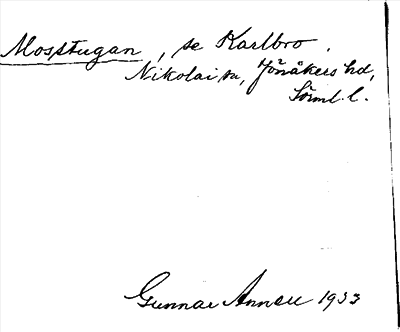 Mosstugan, se Karlbro.
Nikolai sn, Jönåkers hd,
Sörml. l.
Gunnar Annell 1933